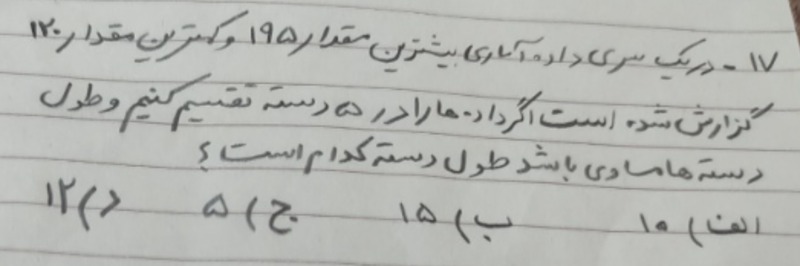 ۱۷ - در یک سری داده آماری بیشترین مقدار ۱۹۵ و کمترین مقدار ۱۲۰
گزارش شده است اگر داده ها را در ۵ دسته تقسیم کنیم و طول
دسته ها مساوی باشد طول دسته کدام است؟
الف) ۱۰ ب) ۱۵ ج) ۵ د) ۱۲